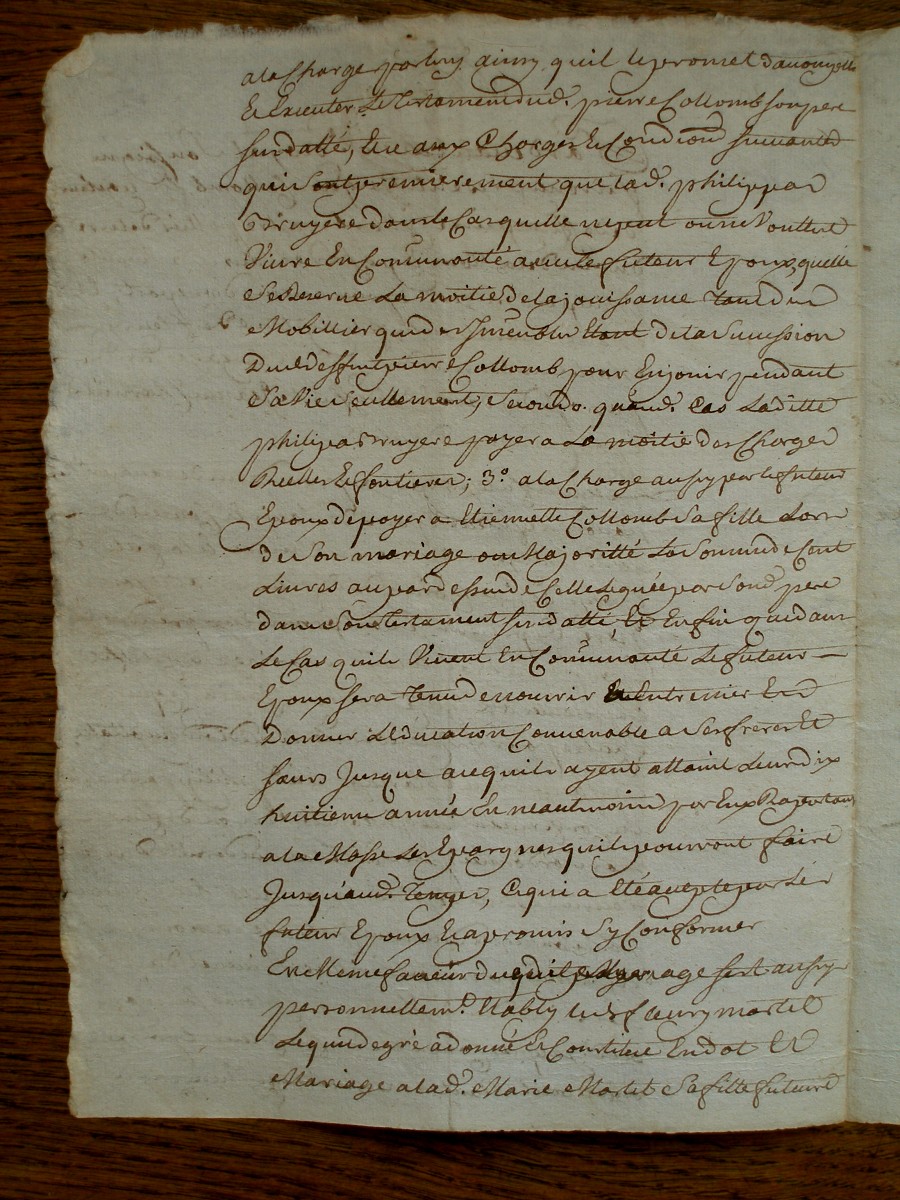 ala Charge par luy ainsy quil le promet davouyer
Et Executer Le Testament dud. pierre Collomb son pere
susdatté, Et aux Charges Et Condions suivantes
qui sont premierement que lad. philippa
Bruyere dans le Cas quelle ne peut ou ne Voulut
Vivre En Communauté avec le futeur Epoux, quelle
se Reserve La moitié de la jouissance tant du
Mobillier que des Immeubles Etant de la Sucession
Dud deffunt pierre Collomb pour En jouir pendant
Sa Vie seullement, Secondo. quaud. Cas Laditte
philippa Bruyere payera La moitié des Charges
Reelles Et fontieres; 3.º ala Charge aussy par le futeur
Epoux de payer a Etiennette Collomb Sa fille Lors
de Son mariage ou Majoritté La Somme de Cent
Livres au par dessus de Celle Leguée par Sond. pere
dans Son Testament susdatté Et Enfin que dans
Le Cas quils Vivent En Communauté Le futeur
Epoux sera tenu de nourrir Et Entretenir Et
Donner L'éducation Convenable a Ses freres Et
sœurs Jusque a ce quils ayent attaint Leur dix
huitieme année En neantmoins par Eux Raportant
ala Masse Les Epargnes quils pourront faire
Jusquaud. Temps, Ce qui a Eté accepté par Led.
futeur Epoux Et a promis Sy Conformer
En Meme faveur duquel Mariage sest aussy
personnellemt. Etably led. fleury martel
Lequel de gré a donné Et Constitue En dot Et
Mariage a lad. Marie Martel Sa fille future